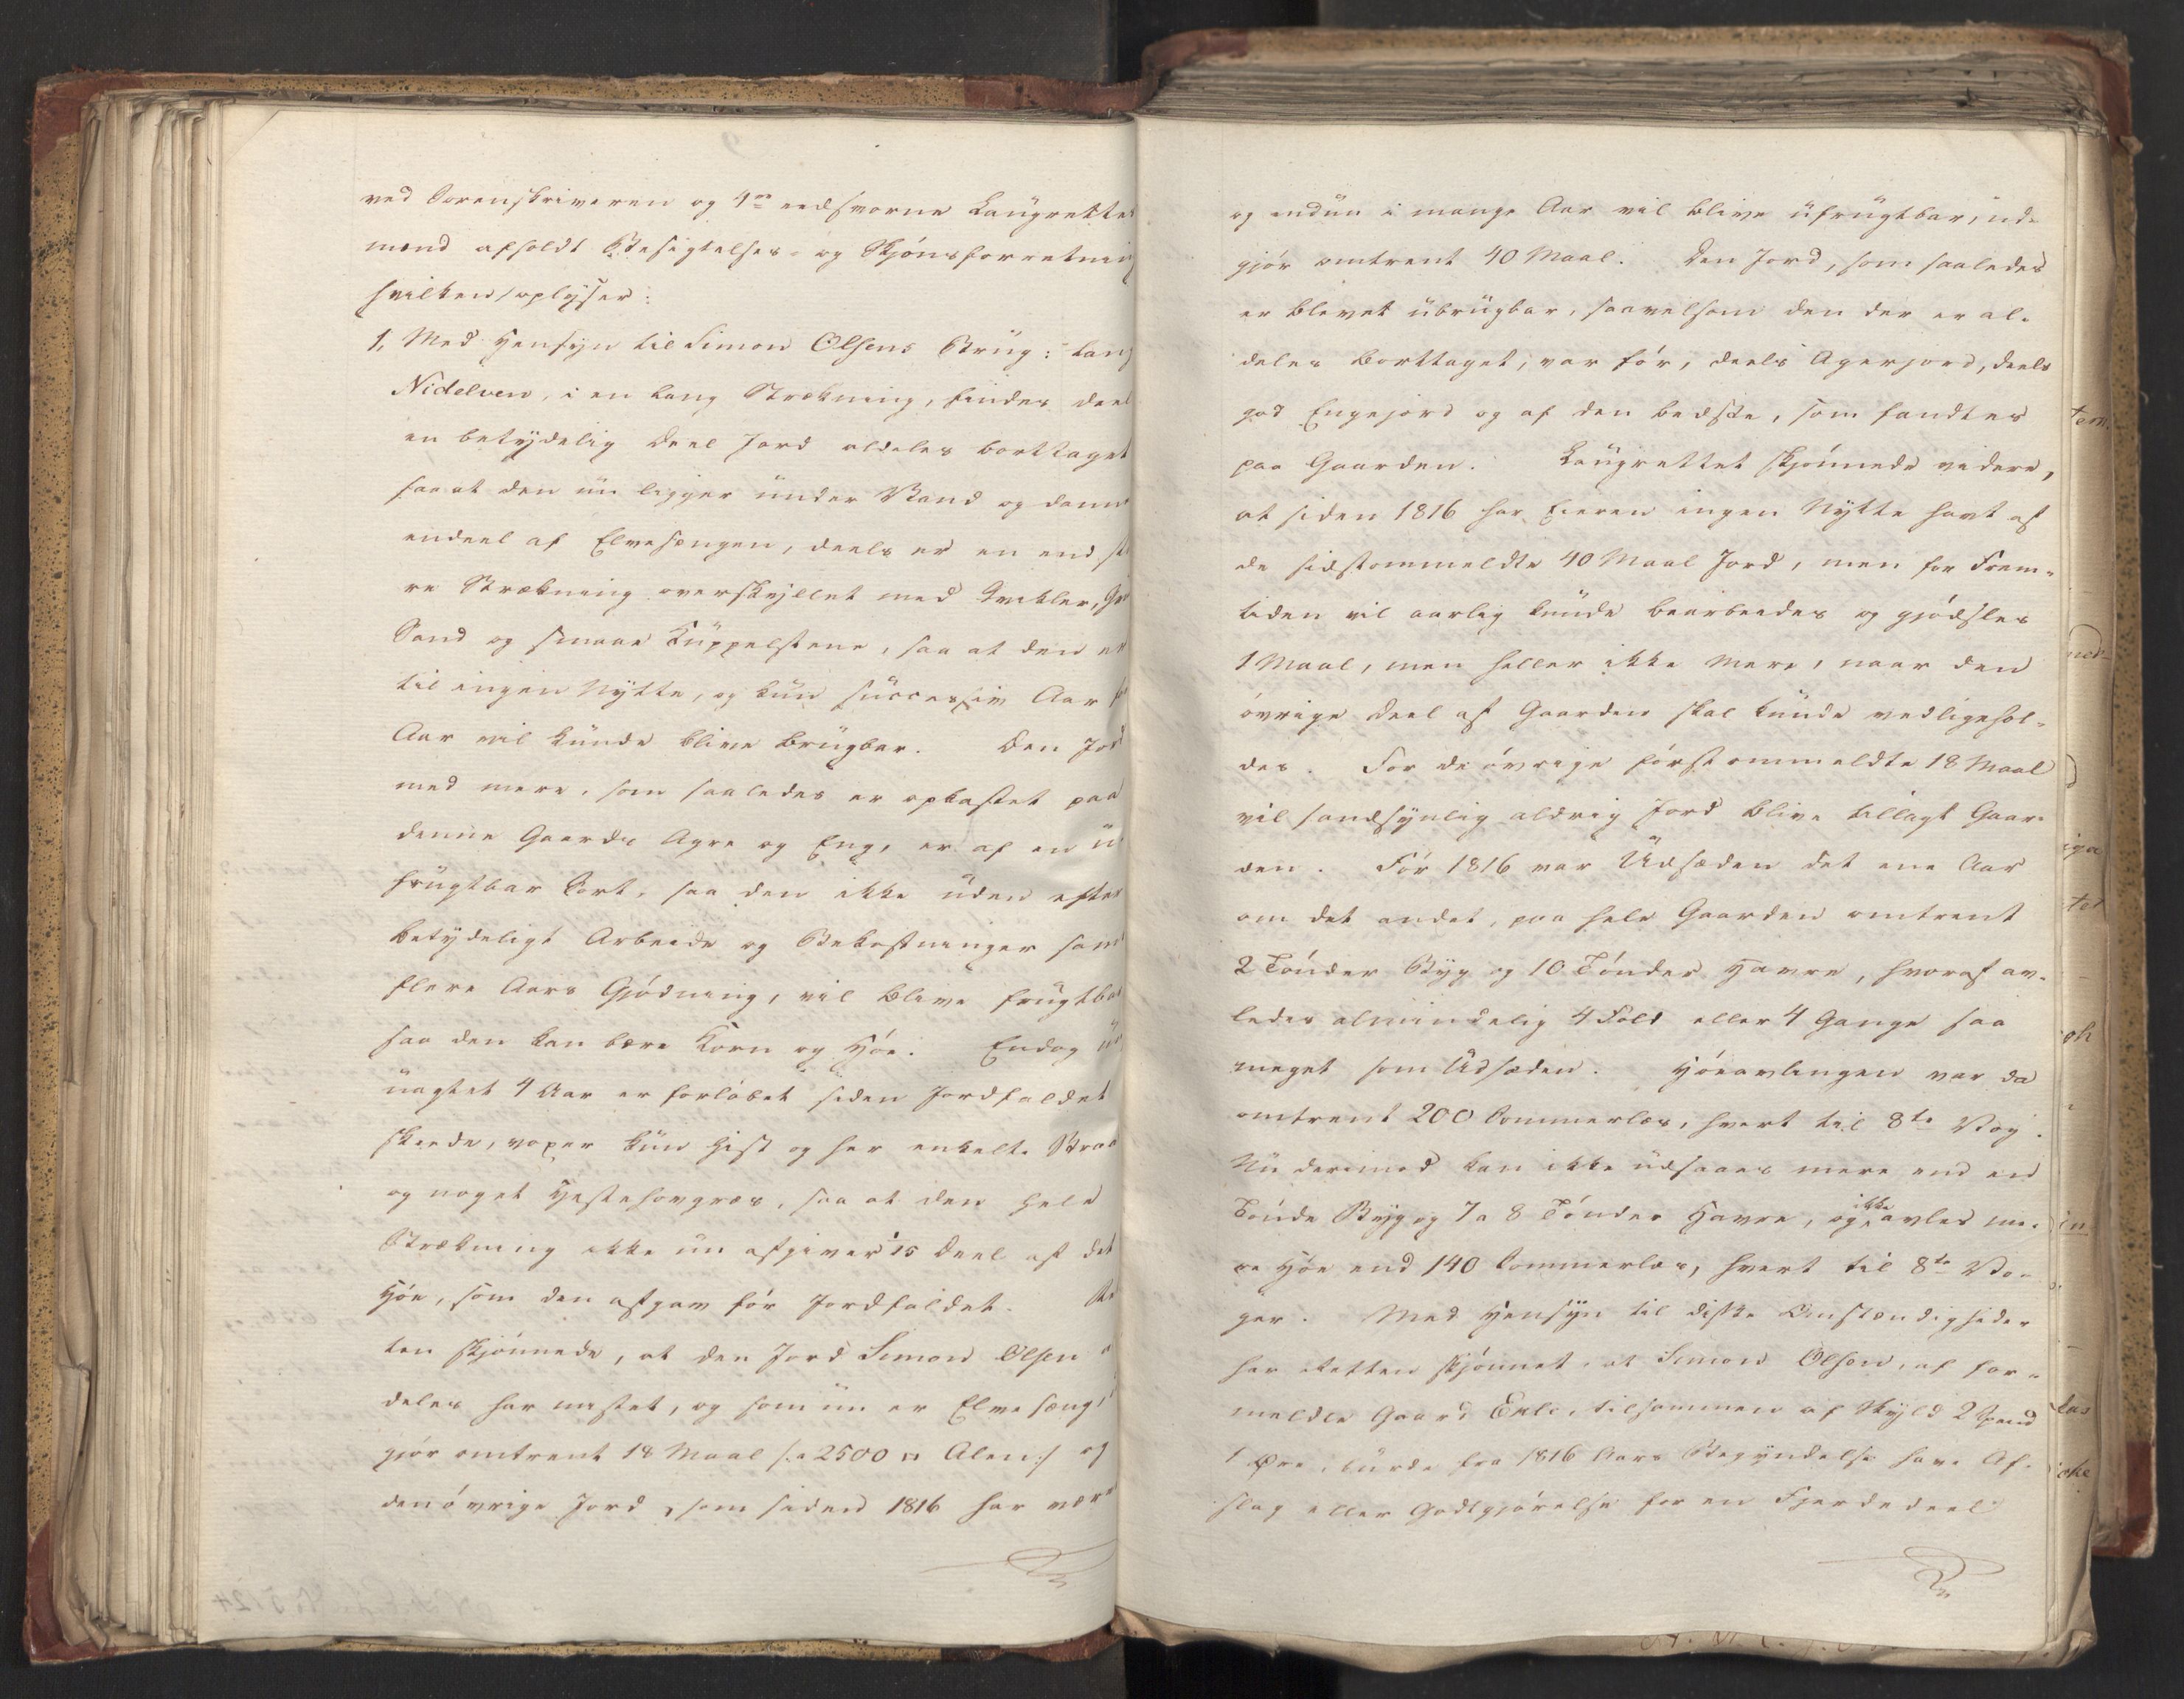 ved Sorenskriveren og 4re eedsvorne Laugrettes
mænd afholdt Besigtelses- og Skjønsforretning
hvilken oplyser:
1, Med Hensyn til Simon Olsens Brug: Lang
Nidelven, i en lang Strækning, findes deel
en betydelig Deel Jord aldeles borttaget
saa at den nu ligger under Vand og danne
endeel af Elvesængen, deels er en end stø
re Strækning overskyllet med Kvikler,
Sand og smaae Kuppelstene, saa at den er
til ingen Nytte, og kun successiv Aar for
Aar vil kunde blive brugbar. Den Jord
med mere, som saaledes er opkastet paa
denne Gaards Agre og Eng, er af en u
frugtbar Sort, saa den ikke uden efter
betydeligt Arbeide og Bekostninger samt
flere Aars Gjødning, vil blive frugtbar
saa den kan bære Korn og Høe. Endog nu
uagtet 4 Aar er forløbet siden Jordfaldet
skeede, voxer kun hist og her enkelte Straa
og noget Hestehovgræs, saa at den hele
Strækning ikke nu afgiver 1/15 Deel af det
Høe, som den afgav før Jordfaldet. Ret
ten skjønnede, at den Jord Simon Olsen al
deles har mistet, og som nu er Elvesæng,
gjør omtrent 18 Maal /: a 2500 □ Alen :/ og
den øvrige Jord, som siden 1816 har været
og endnu i mange Aar vil blive ufrugtbar, ud-
gjør omtrent 40 Maal. Den Jord, som saaledes
er blevet ubrugbar, saavelsom den der er al-
deles borttaget, var før, deels Agerjord, deels
god Engejord og af den bedste, som fandtes
paa Gaarden. Laugrettet skjønnede videre,
at siden 1816 har Eieren ingen Nytte havt af
de sidstommeldte 40 Maal Jord, men for Frem-
tiden vil aarlig kunde bearbeides og gjødsles
1 Maal, men heller ikke mere, naar den
øvrige Deel af Gaarden skal kunde vedligehol-
des. For de øvrige først ommeldte 18 Maal
vil sandsynlig aldrig Jord blive tillagt Gaar-
den. Før 1816 var Udsæden det ene Aar
om det andet, paa hele Gaarden omtrent
2 Tønder Byg og 10 Tønder Havre, hvoraf av-
ledes almindelig 4 Fold eller 4 Gange saa
meget som Udsæden. Høeavlingen var da
omtrent 200 Sommerlæs, hvert til 8te Vog.
Nu derimod kan ikke udsaaes mere end en
Tønde Byg og 7 a 8 Tønder Havre, og ikke avles me-
re Høe end 140 Sommerlæs, hvert til 8te Vo-
ger. Med Hensyn til disse Omstændigheder
har Retten skjønnet, at Simon Olsen, af for-
meldte Gaard Enli, tilsammen af Skyld 2 Spand
1 Øre, burde fra 1816 Aars Begyndelse have Af-
slag eller Godtgjørelse for en Fjerdedeel